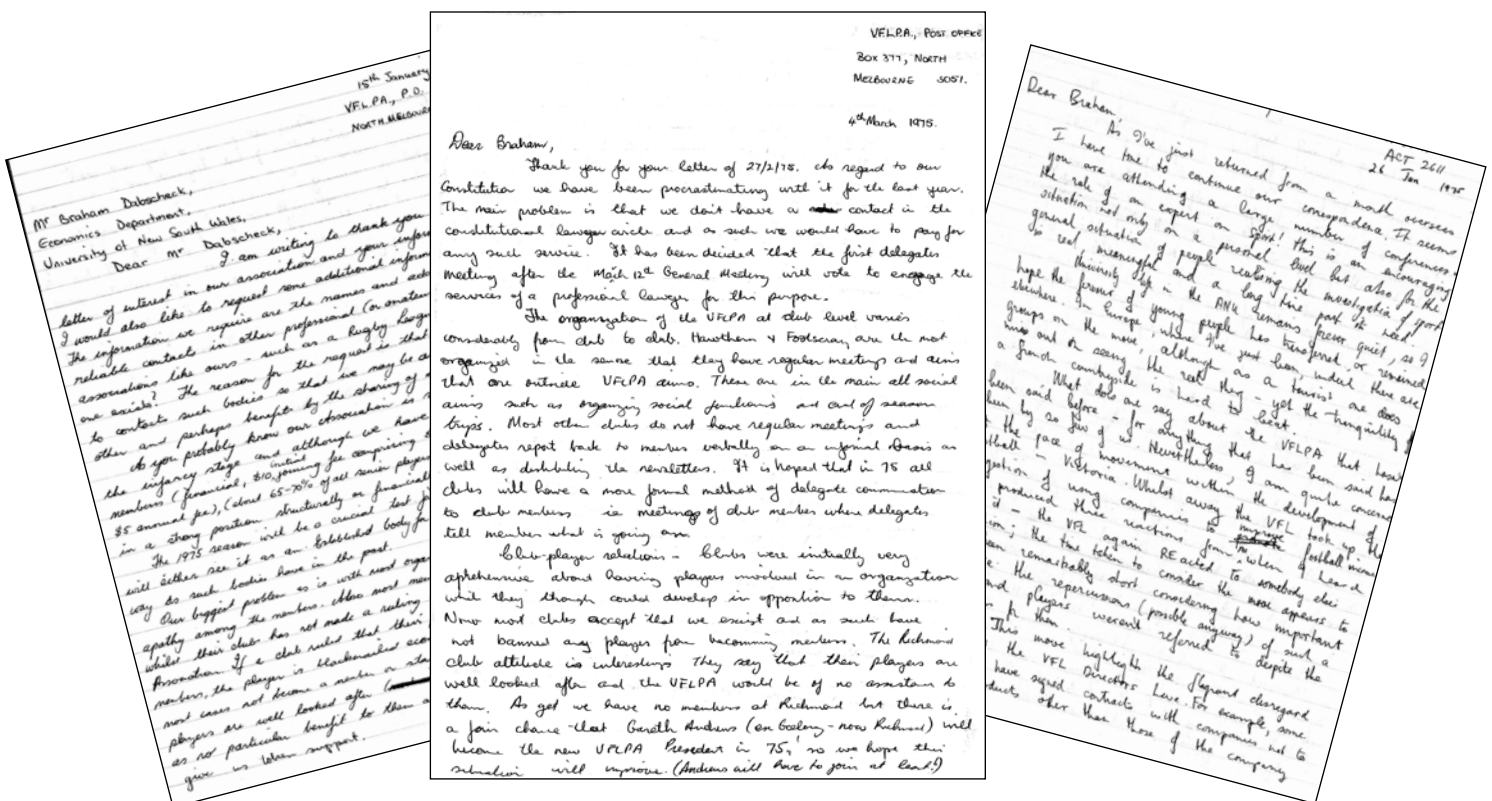 15th January
V.F.L.P.A., P.O.
NORTH MELBOURNE
Mr Braham Dabscheck,
Economics Department,
University of New South Wales,
Dear Mr Dabscheck,
I am writing to thank you
letter of interest in our association and your
I would also like to request some additional
The information we require are the names and
reliable contacts in other professional (or amateur
associations like ours - such as a Rugby League
one exists? The reason for the request is that
to contact such bodies so that we may be
other and perhaps benefit by the sharing of
As you probably know our association is
the infancy stage and although we have
members (financial, $10 initial joining fee comprising
$5 annual fee), (about 65-70% of all senior players
in a strong position structurally or financially
The 1975 season will be a crucial test
will either see it as an Established body
way as such bodies have in the past.
Our biggest problem as is with most
apathy among the members. Also most
whilst their club has not made a ruling
Association. If a club ruled that their
members, the player is blackmailed
most cases not become a member or
players are well looked after
as no particular benefit to them
give us token support.
V.F.L.P.A., POST OFFICE
BOX 377, NORTH
MELBOURNE 3051.
4th March 1975.
Dear Braham,
Thank you for your letter of 27/2/75. As regard to our
Constitution we have been procrastinating with it for the last year.
The main problem is that we don't have a contact in the
constitutional lawyer circle and as such we would have to pay for
any such service. It has been decided that the first delegates
meeting after the March 12th General Meeting will vote to engage the
services of a professional lawyer for this purpose.
The organization of the VFLPA at club level varies
considerably from club to club. Hawthorn & Footscray are the most
organized in the sense that they have regular meetings and aims
that are outside VFLPA aims. These are in the main all social
aims such as organizing social functions and end of season
trips. Most other clubs do not have regular meetings and
delegates report back to members verbally on an informal basis as
well as distributing the newsletters. It is hoped that in 75 all
clubs will have a more formal method of delegate communication
to club members ie meetings of club members where delegates
tell members what is going on.
Club-player relations - Clubs were initially very
aprehensive about having players involved in an organization
whih they though could develop in oppontion to them.
Now most clubs accept that we exist and as such have
not banned any players from becomming members. The Richmond
club attitude is interesting. They say that their players are
well looked after and the VFLPA would be of no assistan to
them. As yet we have no members at Richmond but there is
a fair chance that Gareth Andrews (ex Geelong - now Richmond) will
become the new VFLPA President in 75, so we hope this
situation will improve. (Andrews will have to join at least!)
ACT 2611
26 Jan 1975
Dear Braham,
As I've just returned from a month overseas
I have time to continue our correspondence. It seems
you are attending a large number of conferences.
the role of an expert on Sport! this is an encouraging
situation not only on a personal level but also for the
general situation of people realising the investigation of sport
is real, meaningful and a long time past its need.
University life in the ANU remains forever quiet, so I
hope the fervour of young people has transferred, or remained
elsewhere. In Europe, where I've just been, indeed there are
groups on the move, although as a tourist one does
miss out on seeing the real thing - yet the tranquility of
a french countryside is hard to beat.
What does one say about the VFLPA that hasn't
been said before - for anything that has been said has
been by so few of us. Nevertheless, I am quite concerned
the pace of movement within the development of
football in Victoria. Whilst away the VFL took up the
of using companies to football
produced three reactions from me when I heard
it - the VFL again REacted to somebody else's
the time taken to consider the move appears to
been remarkably short considering how important
the repercussions (possible anyway) of such a
and players weren't referred to despite the
for them.
This move highlights the flagrant disregard
the VFL Directors have. For example, some
have signed contracts with companies not to
other than those of the company